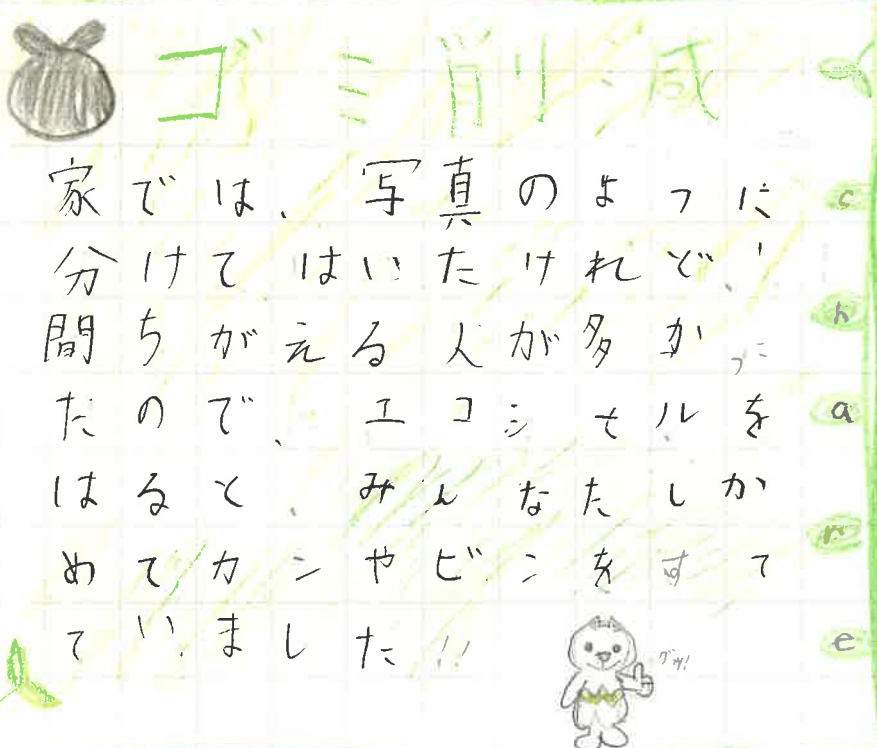 ゴミ削減
家では、写真のように
分けてはいたけれど、
間ちがえる人が多かっ
たので、エコシールを
はると、みんなたしか
めてカンやビンをすて
ていました!!
グッ!
c
h
a
r
e